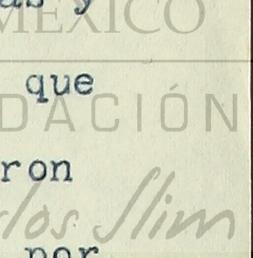 as y
MÉXICO
que
DACIÓN
ron
los Slim
por